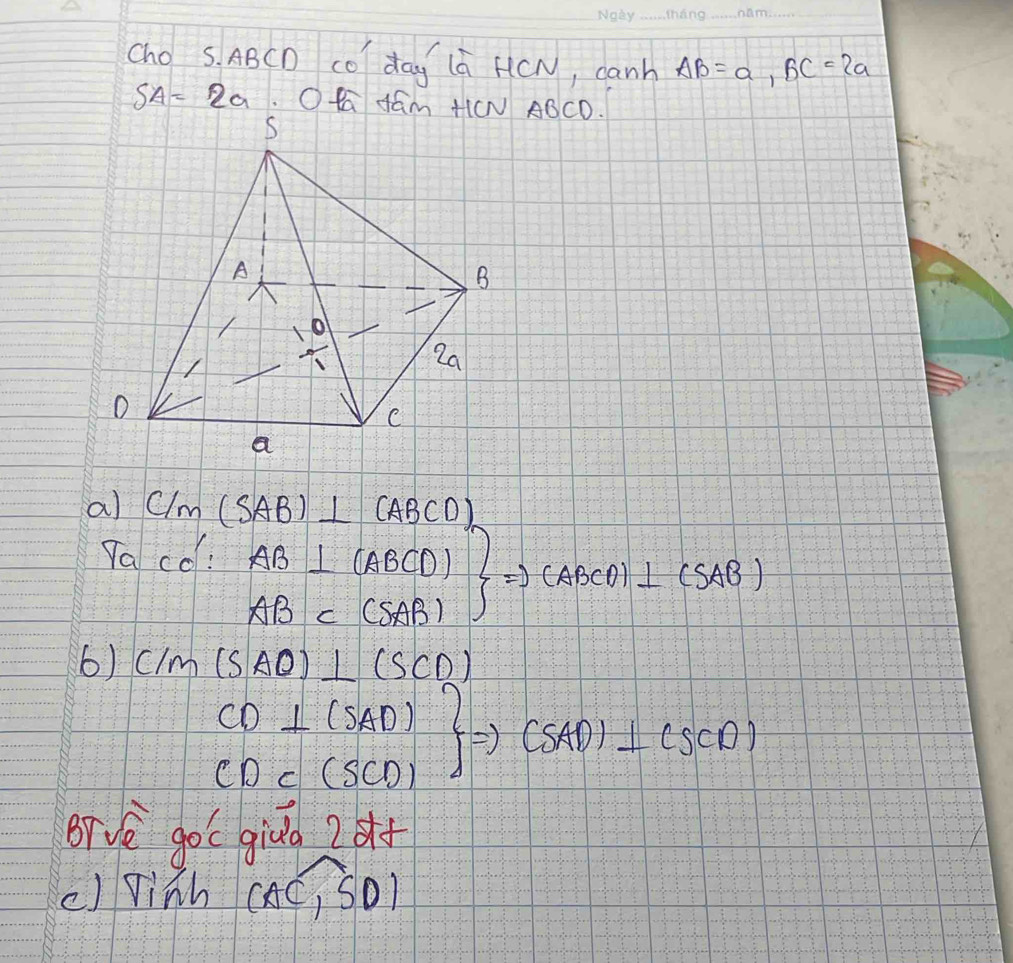 Ngày ......tháng ......năm......
Cho S.ABCD có đáy là HCN, cạnh AB = a, BC = 2a
SA = 2a. O là tâm HCN ABCD.
S
A
B
O
2a
D
C
a
a) C/m (SAB) ⊥ (ABCD)
Ta có: AB ⊥ (ABCD) } => (ABCD) ⊥ (SAB)
AB ⊂ (SAB)
b) C/m (SAD) ⊥ (SCD)
CD ⊥ (SAD) } => (SAD) ⊥ (SCD)
CD ⊂ (SCD)
BT về góc giữa 2 đt
c) Tính (AC, SD)